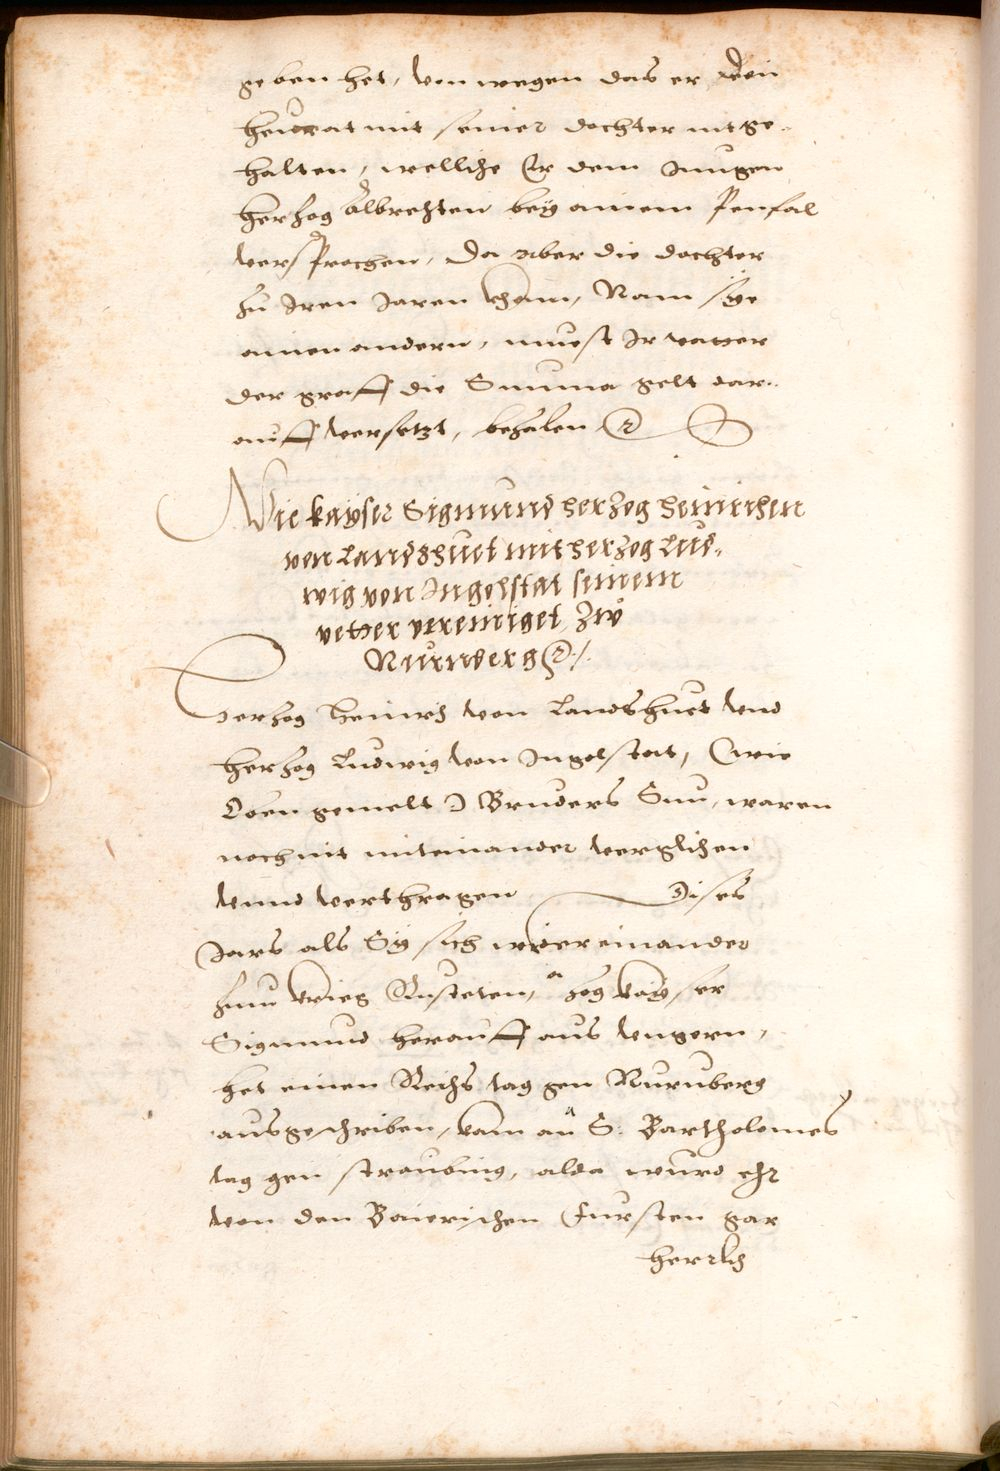 geben het, von wegen das er den
heurat mit seiner dochter nit ge-
halten, welliche Er dem Jungen
herzog Albrechten bey ainem Penfal
versprochen, Da aber die dochter
zu Iren Jaren kham, Nam sye
ainen andern, muest Ir vatter
der graff die Summa gelt dar-
auff versetzt, bezalen
Wie kayser Sigmund herzog heinrichen
von Landshuet mit herzog Lud-
wig von Ingolstat seinem
vetter vereiniget zw
Nurnberg
Herzog Heinrich von Landshuet vnd
herzog Ludwig von Ingolstat, (wie
Oben gemelt) Bruders Sun, waren
noch nit miteinander verglichen
vnnd verthragen Dises
Jars als Sy sich widereinander
zum krieg Rusteten, zog kayser
Sigmund herauff aus vngern,
het einen Reichs tag gen Nurnberg
ausgeschriben, kam an S: Bartholomes
tag gen straubing, alda wurd ehr
von den Bairischen Fursten gar
herrlich